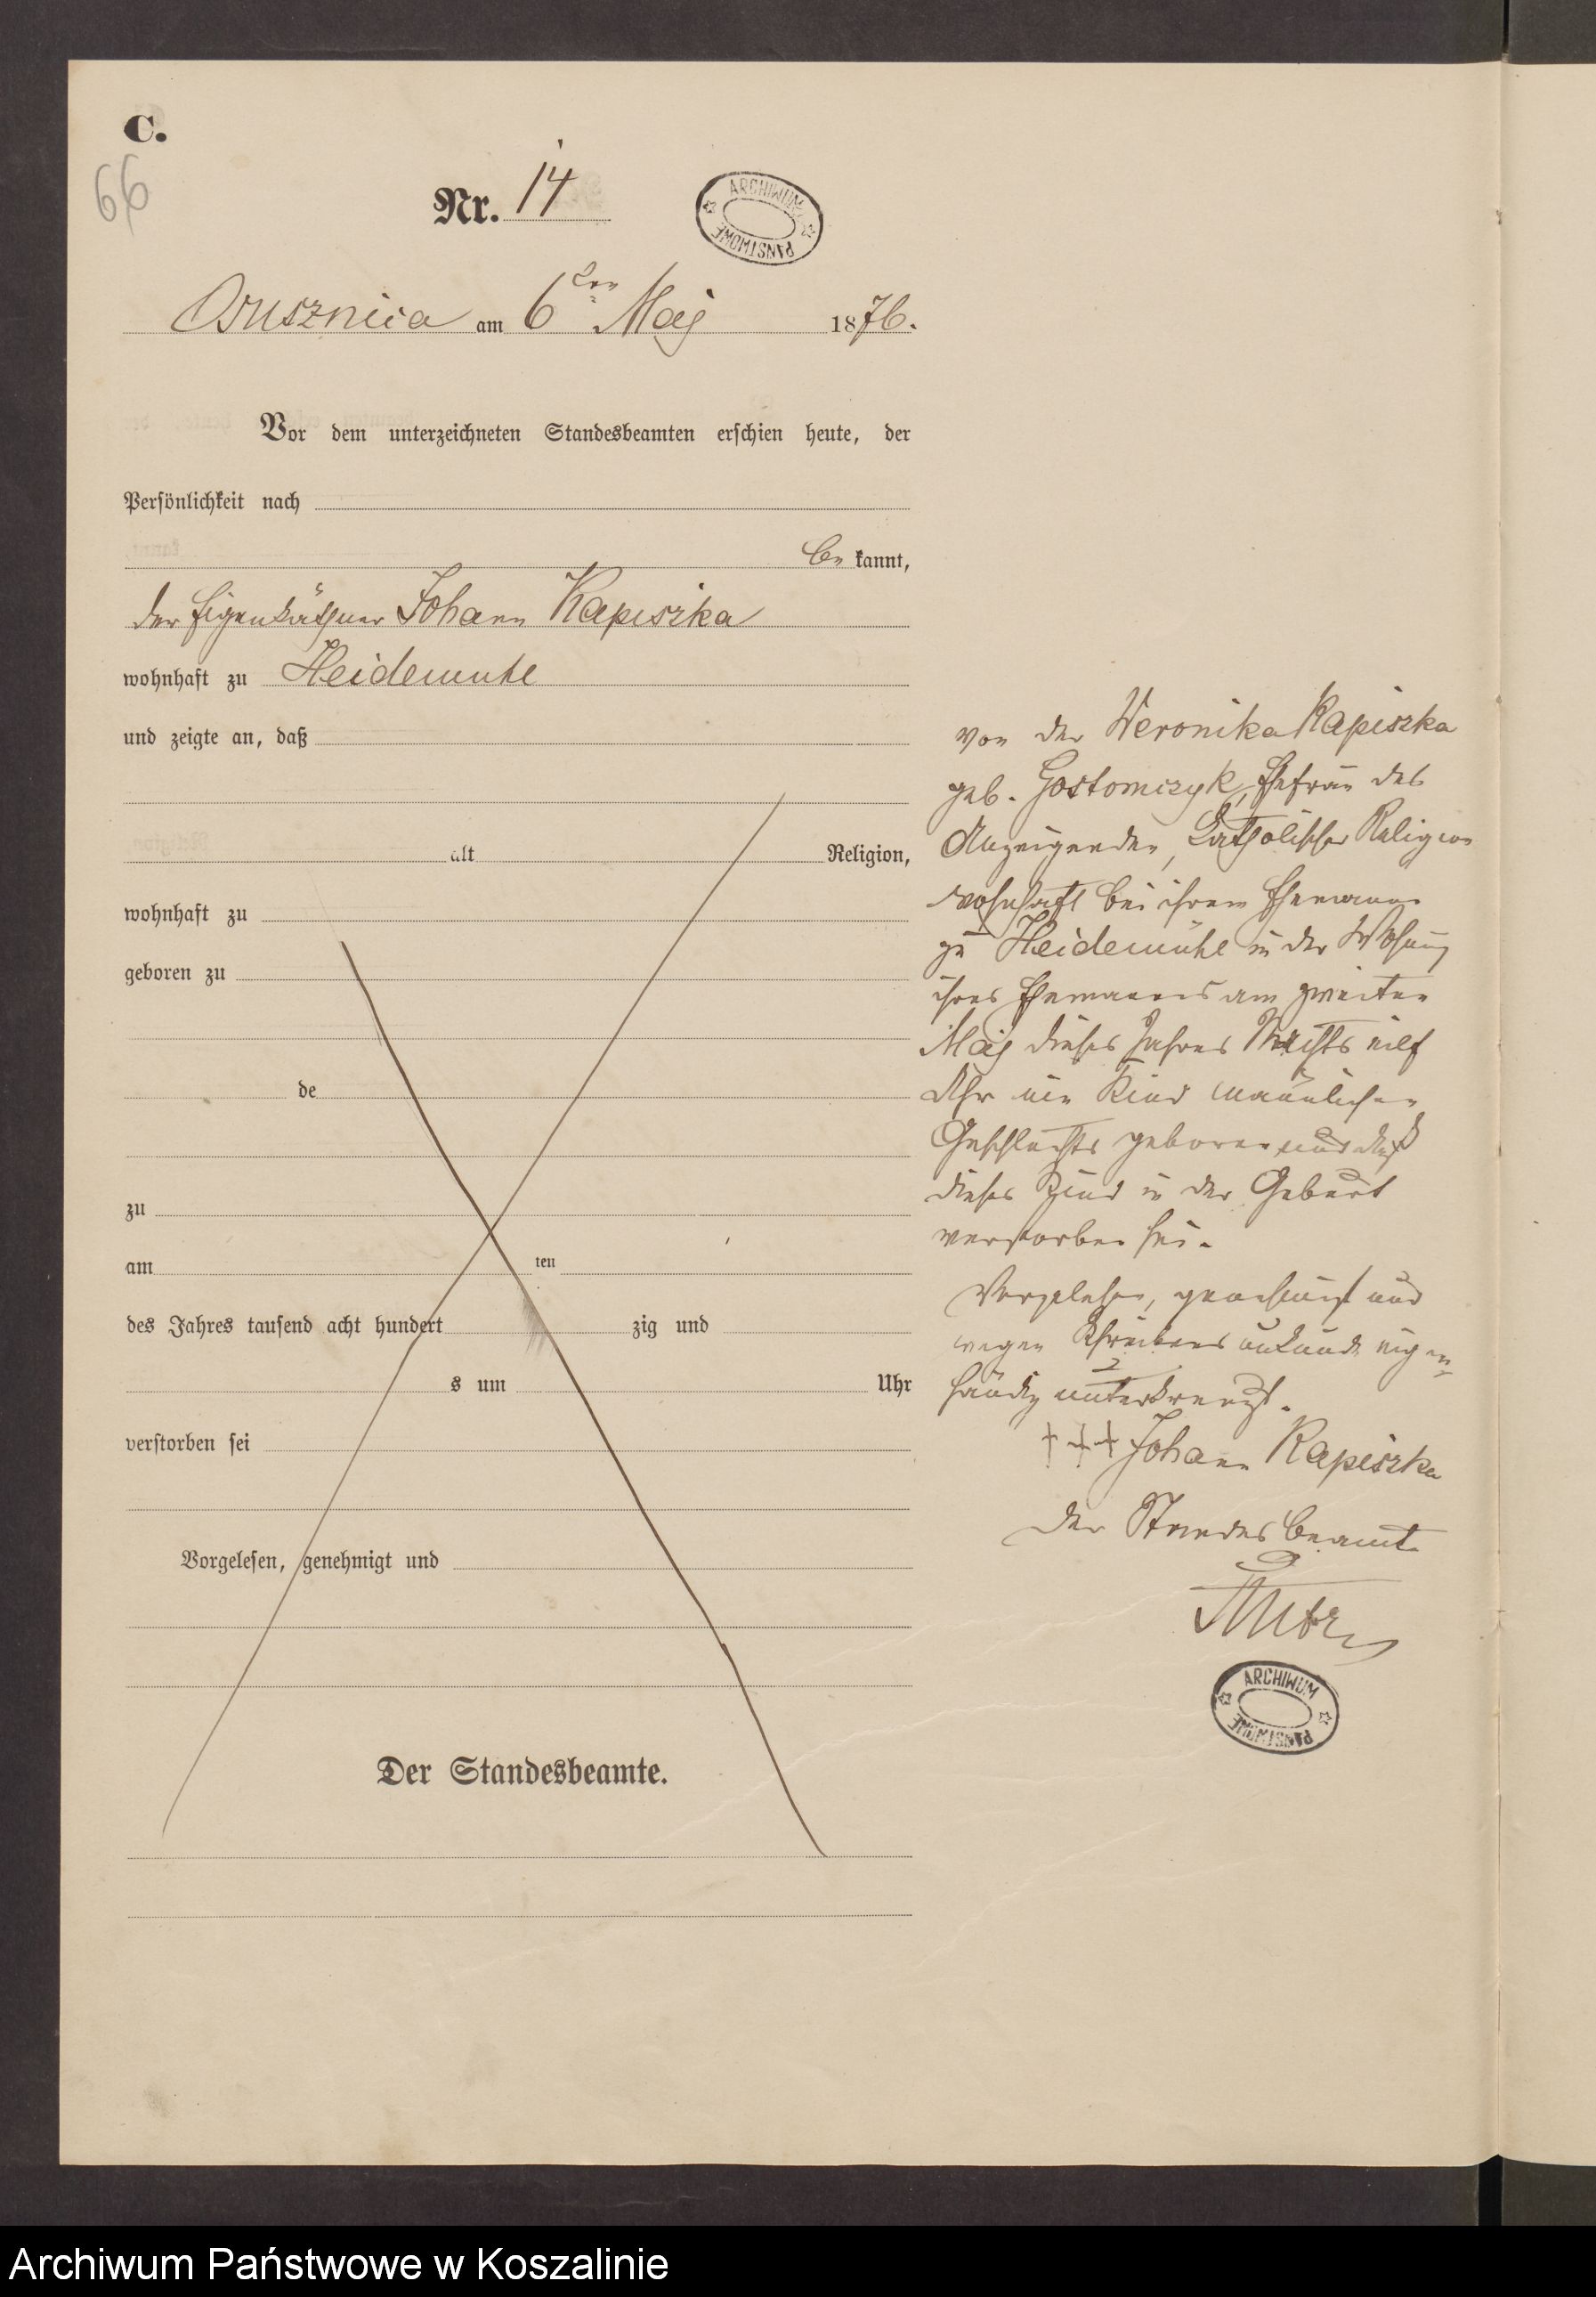 C.
66
Nr. 14
ARCHIWUM PAŃSTWOWE
Osusznica am 6ten Maj 1876.
Vor dem unterzeichneten Standesbeamten erschien heute, der
Persönlichkeit nach
be kannt,
der Eigenkäthner Johann Kapiszka
wohnhaft zu Heidemuhl
und zeigte an, daß
alt Religion,
wohnhaft zu
geboren zu
de
zu
am ten
des Jahres tausend acht hundert zig und
s um Uhr
verstorben sei
Vorgelesen, genehmigt und
Der Standesbeamte.
von der Weronika Kapiszka
geb. Gostomczyk, Ehefrau des
Anzeigenden, katholischer Religion
wohnhaft bei ihrem Ehemann
zu Heidemühl in der Wohnung
ihres Ehemannes am zweiten
Maj dieses Jahres Nachts eilf
Uhr ein Kind männlichen
Geschlechts geboren und daß
dieses Kind in der Geburt
verstorben sei.
Vorgelesen, genehmigt und
wegen Schreibens unkunde eigen-
händig unterkreuzt.
+++ Johann Kapiszka
Der Standesbeamte
ARCHIWUM PAŃSTWOWE
Archiwum Państwowe w Koszalinie